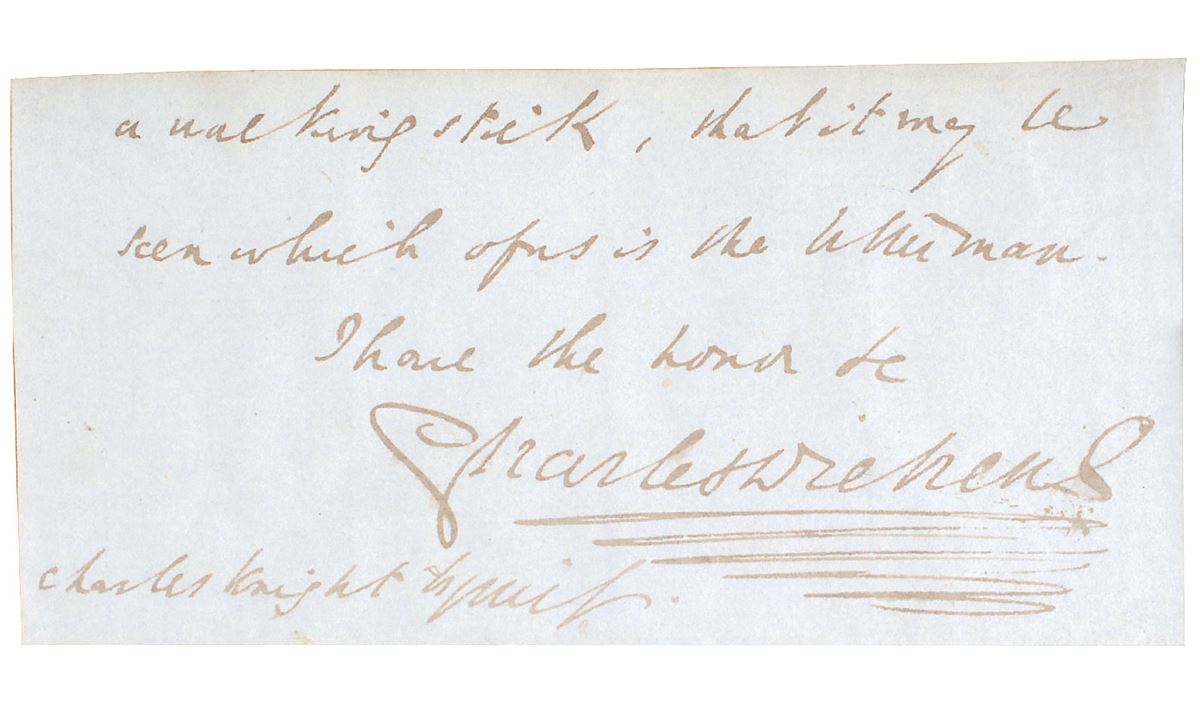 a walking stick, that it may be
seen which of us is the better man.
I have the honor &c
Charles Dickens
Charles Knight Esquire.